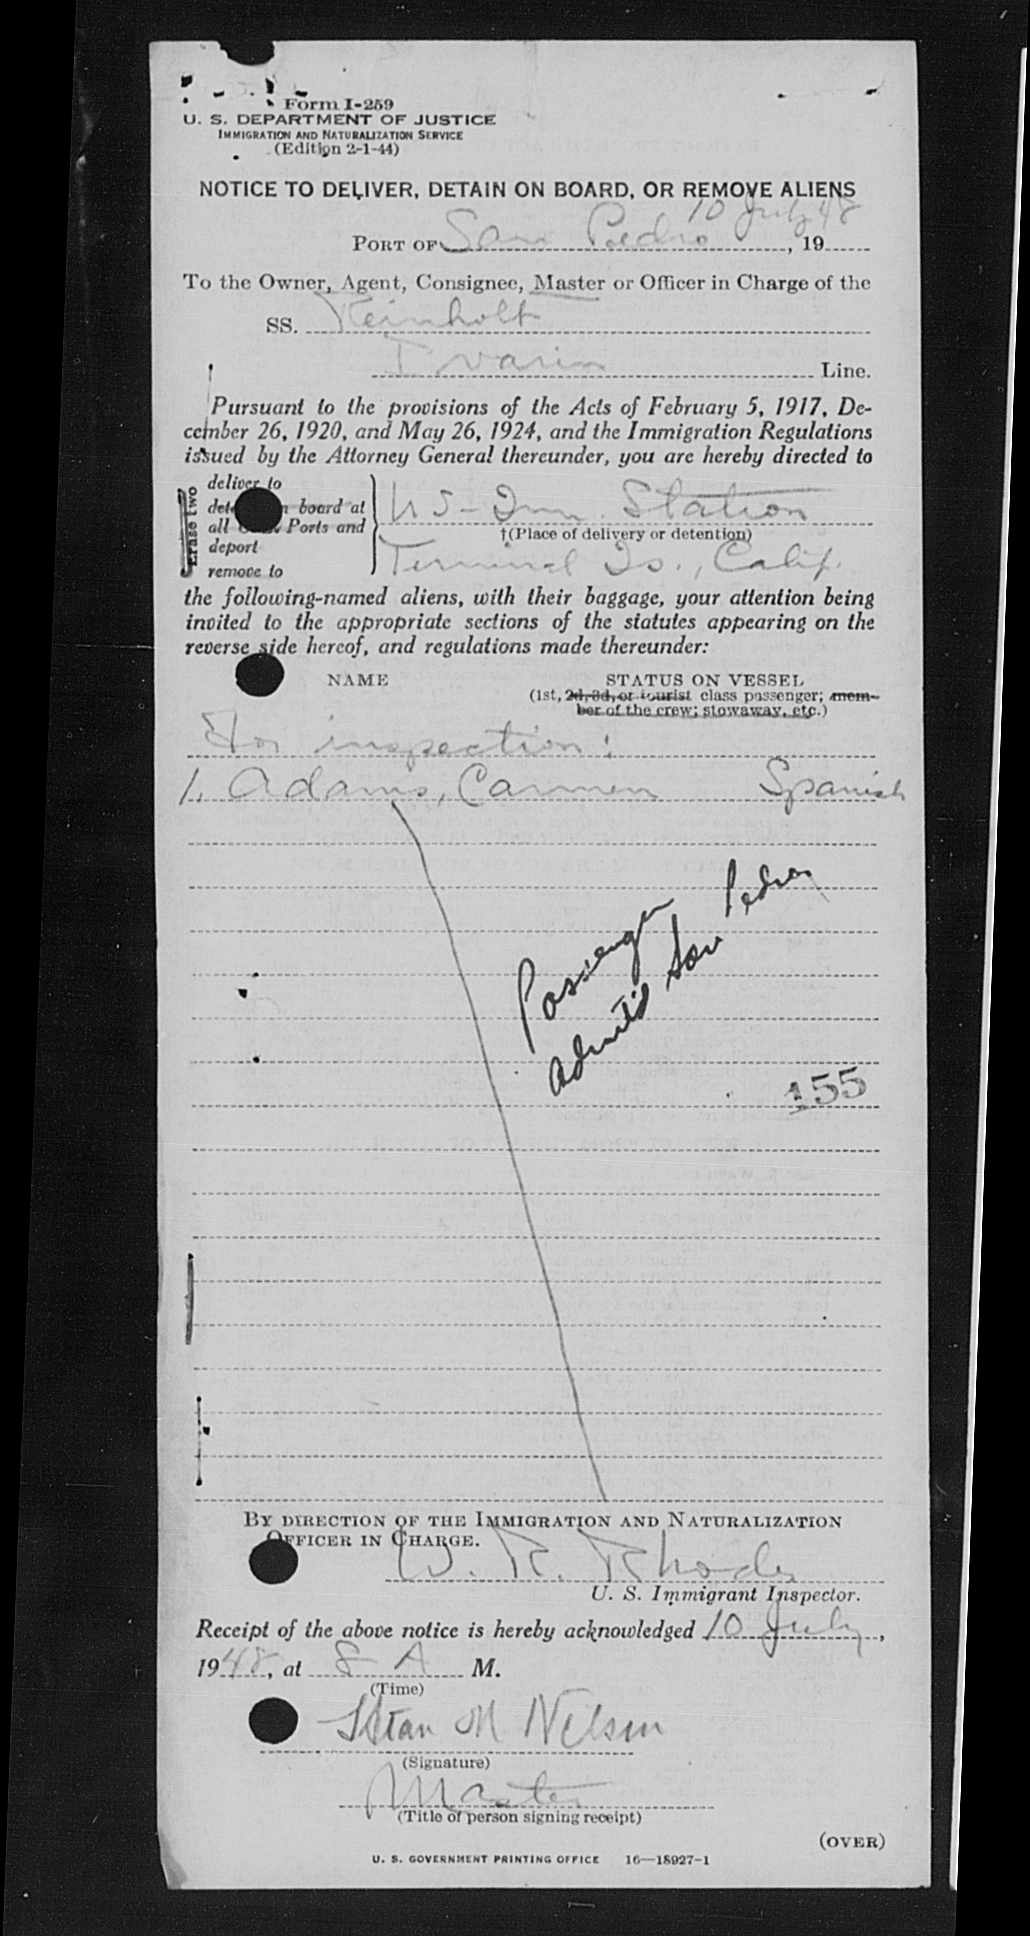 Form I-259
U. S. DEPARTMENT OF JUSTICE
IMMIGRATION AND NATURALIZATION SERVICE
(Edition 2-1-44)
NOTICE TO DELIVER, DETAIN ON BOARD, OR REMOVE ALIENS
10 July 48
PORT OF San Pedro, 19
To the Owner, Agent, Consignee, Master or Officer in Charge of the
SS. Reinholt
Ivarin Line.
Pursuant to the provisions of the Acts of February 5, 1917, De-
cember 26, 1920, and May 26, 1924, and the Immigration Regulations
issued by the Attorney General thereunder, you are hereby directed to
Erase two
deliver to
board at
all Ports and
deport
remove to
US-Imm. Station
†(Place of delivery or detention)
Terminal Is., Calif.
the following-named aliens, with their baggage, your attention being
invited to the appropriate sections of the statutes appearing on the
reverse side hereof, and regulations made thereunder:
NAME STATUS ON VESSEL
(1st, 2d, 3d, or tourist class passenger; mem-
ber of the crew; stowaway, etc.)
For inspection:
1. Adams, Carmen Spanish
Passenger
admitd San Pedro
155
BY DIRECTION OF THE IMMIGRATION AND NATURALIZATION
OFFICER IN CHARGE.
W. R. Rhodes
U. S. Immigrant Inspector.
Receipt of the above notice is hereby acknowledged 10 July,
1948, at 8 A M.
(Time)
M Nilsen
(Signature)
Master
(Title of person signing receipt)
(OVER)
U. S. GOVERNMENT PRINTING OFFICE 16—18927-1